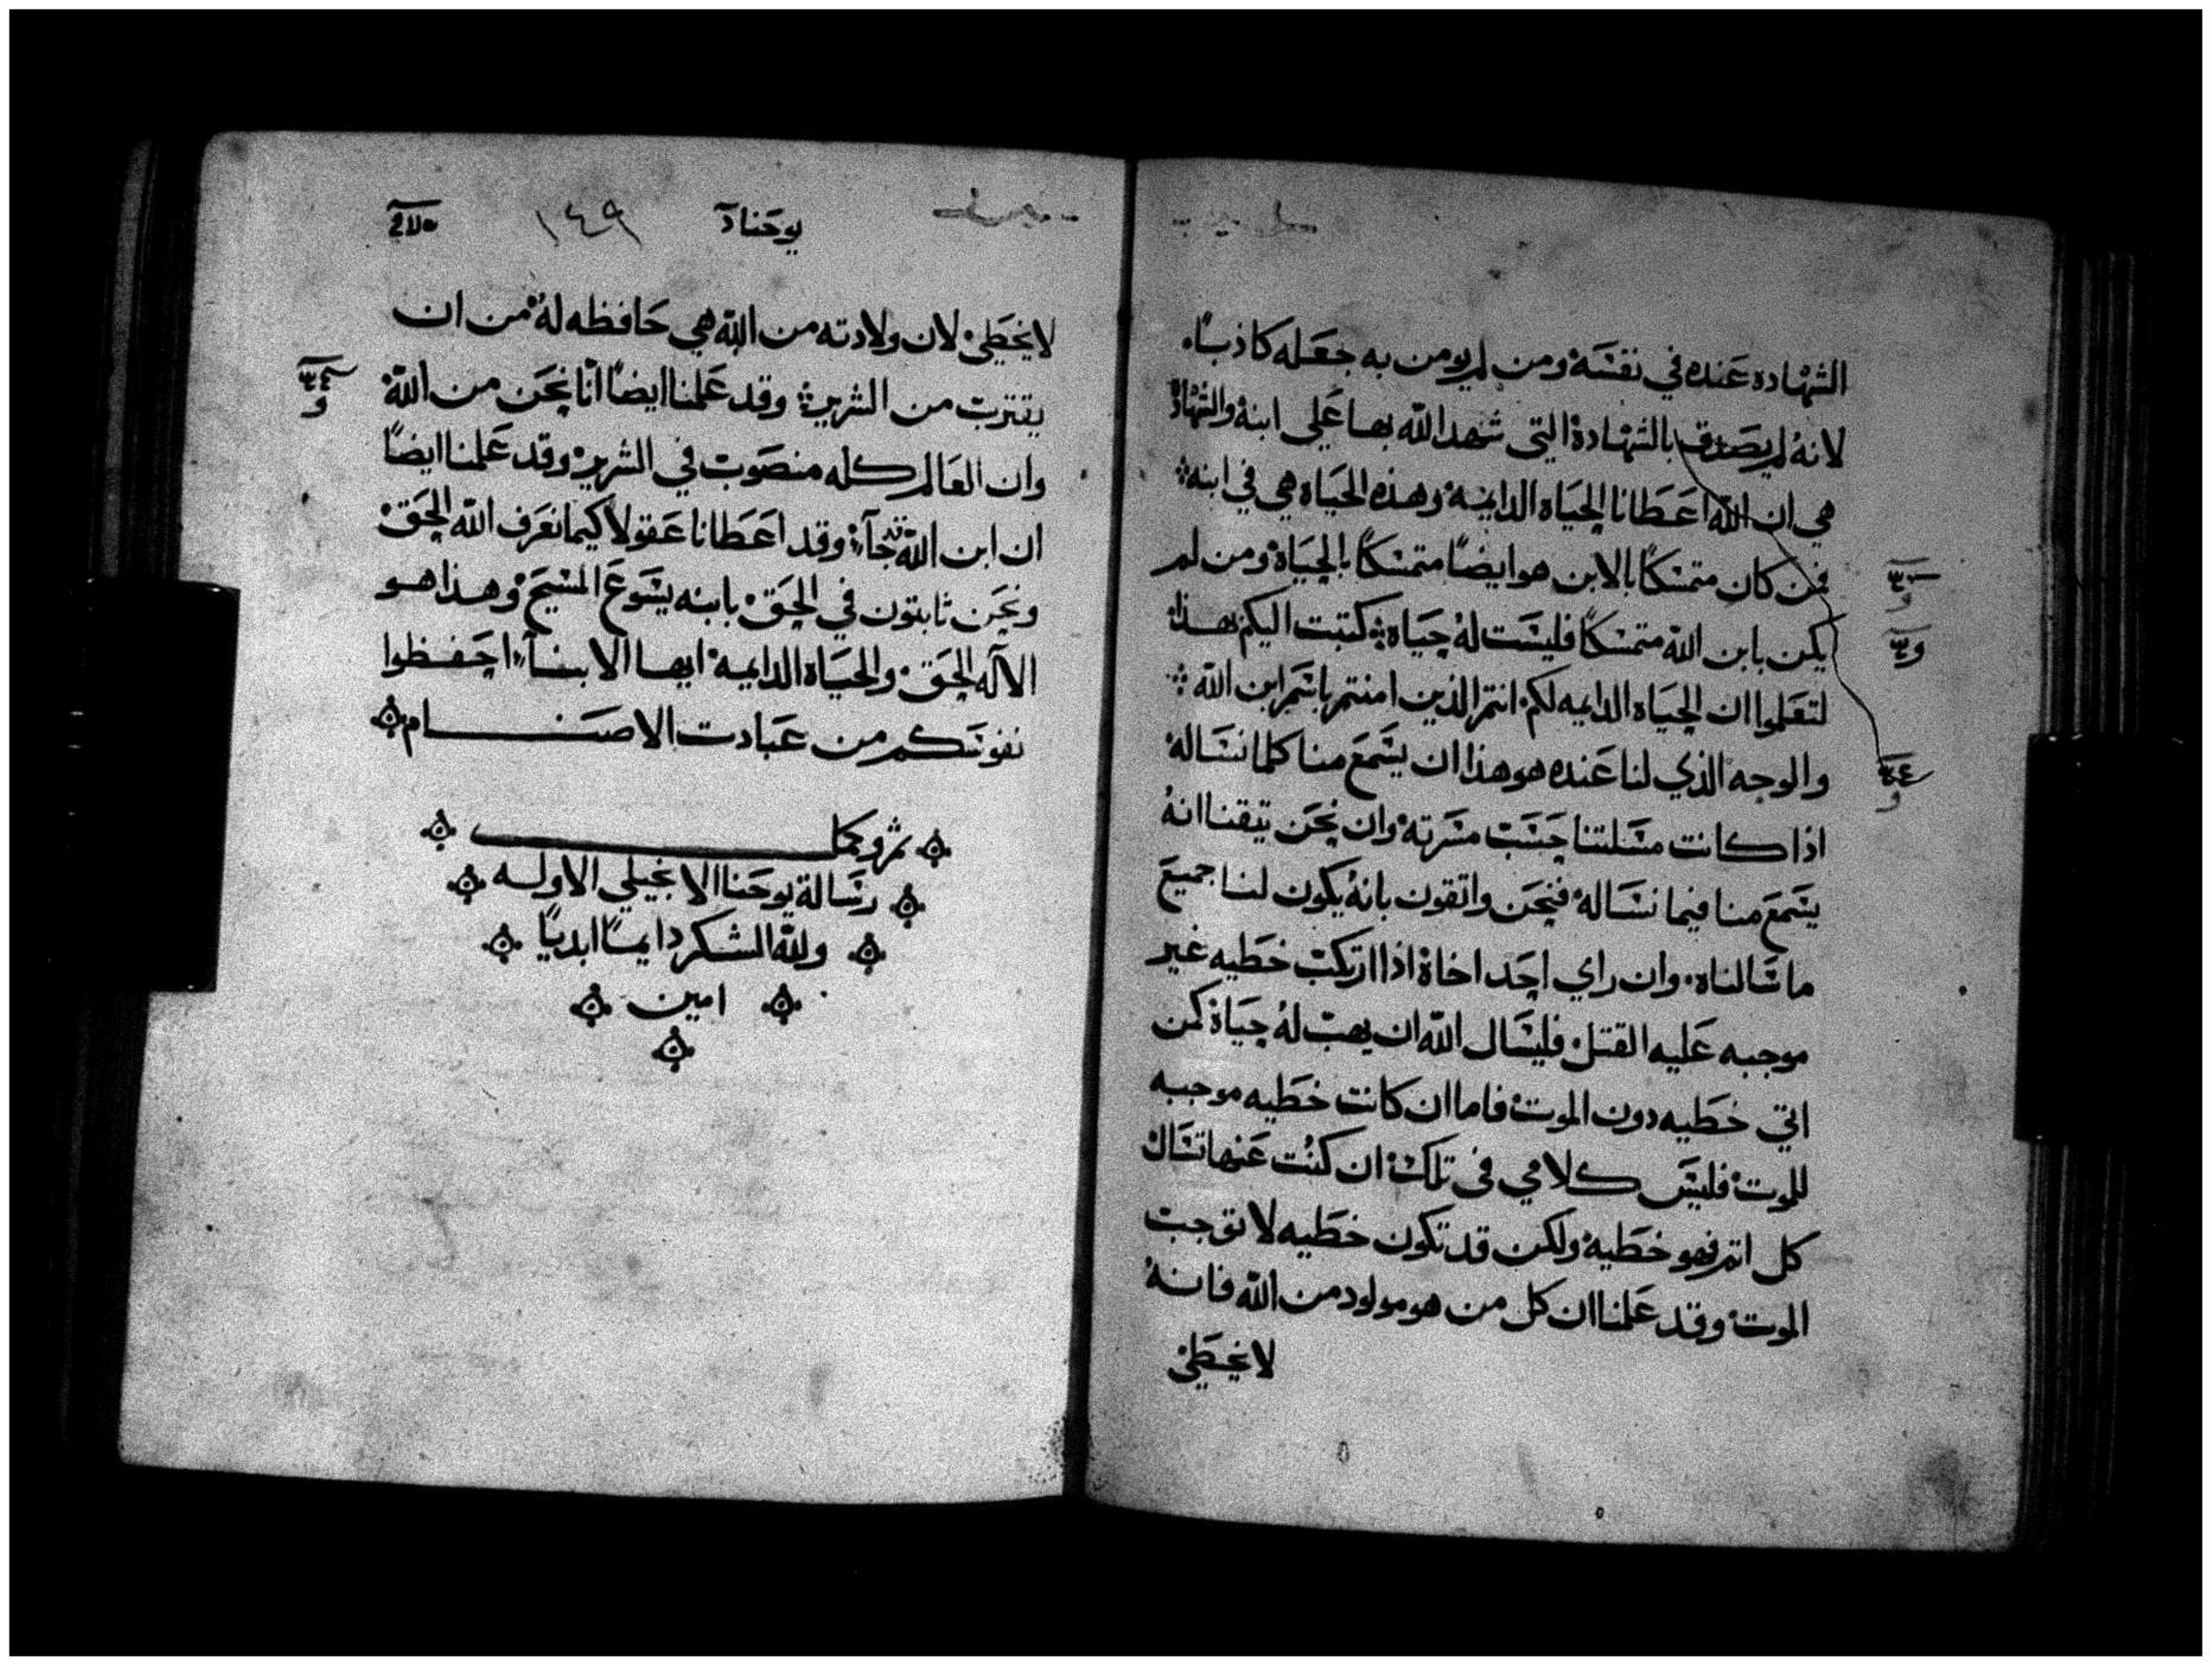 الشهاده عنده في نفسه ومن لم يومن به جعله كاذبًا.
لانه لم يصدق بالشهادة التي شهد الله بها علي ابنه والشهادة
هي ان الله اعطانا الحياه الدايمه وهذه الحياه هي في ابنه
فمن كان متمسكًا بالابن هو ايضًا متمسكًا بالحياة ومن لم
يكن بابن الله متمسكًا فليست له حياه كتبت اليكم بهذا
لتعلموا ان الحياه الدايمه لكم انتم الذين امنتم باسم ابن الله
والوجه الذي لنا عنده هو هذا ان يسمع منا كلما نساله
اذا كانت مسلتنا حسب مسرته وان نحن تيقنا انه
يسمع منا فيما نساله فنحن واثقون بانه يكون لنا جميع
ما سالناه. وان راي احد اخاه اذا ارتكب خطيه غير
موجبه عليه القتل فليسال الله ان يهب له حياة كمن
اتي خطيه دون الموت فاما ان كانت خطيه موجبه
للموت فليس كلامي في تلك ان كنت عنها تسال
كل اثم فهو خطيه ولكن قد تكون خطيه لا توجب
الموت وقد علمنا ان كل من هو مولود من الله فانه
لا يخطي
يوحنا آ ١٤٩
لا يخطي لان ولادته من الله هي حافظه له من ان
يقترب من الشرير وقد علمنا ايضًا انّا نحن من الله
وان العالم كله منصوب في الشرير وقد علمنا ايضًا
ان ابن الله قد جآء وقد اعطانا عقولا كيما نعرف الله الحق
ونحن ثابتون في الحق بابنه يسوع المسيح وهذا هو
الآله الحق والحياه الدايمه ايها الابنآء احفظوا
نفوسكم من عبادت الاصنام
تمر وكما
رسالة يوحنا الانجيلي الاوله
ولله الشكر دايمًا ابديًا
امين